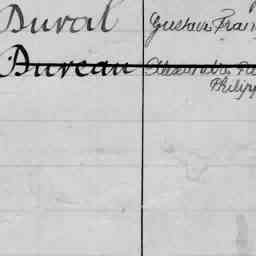 Duval Gustave
Dureau Alexandre
Philipp